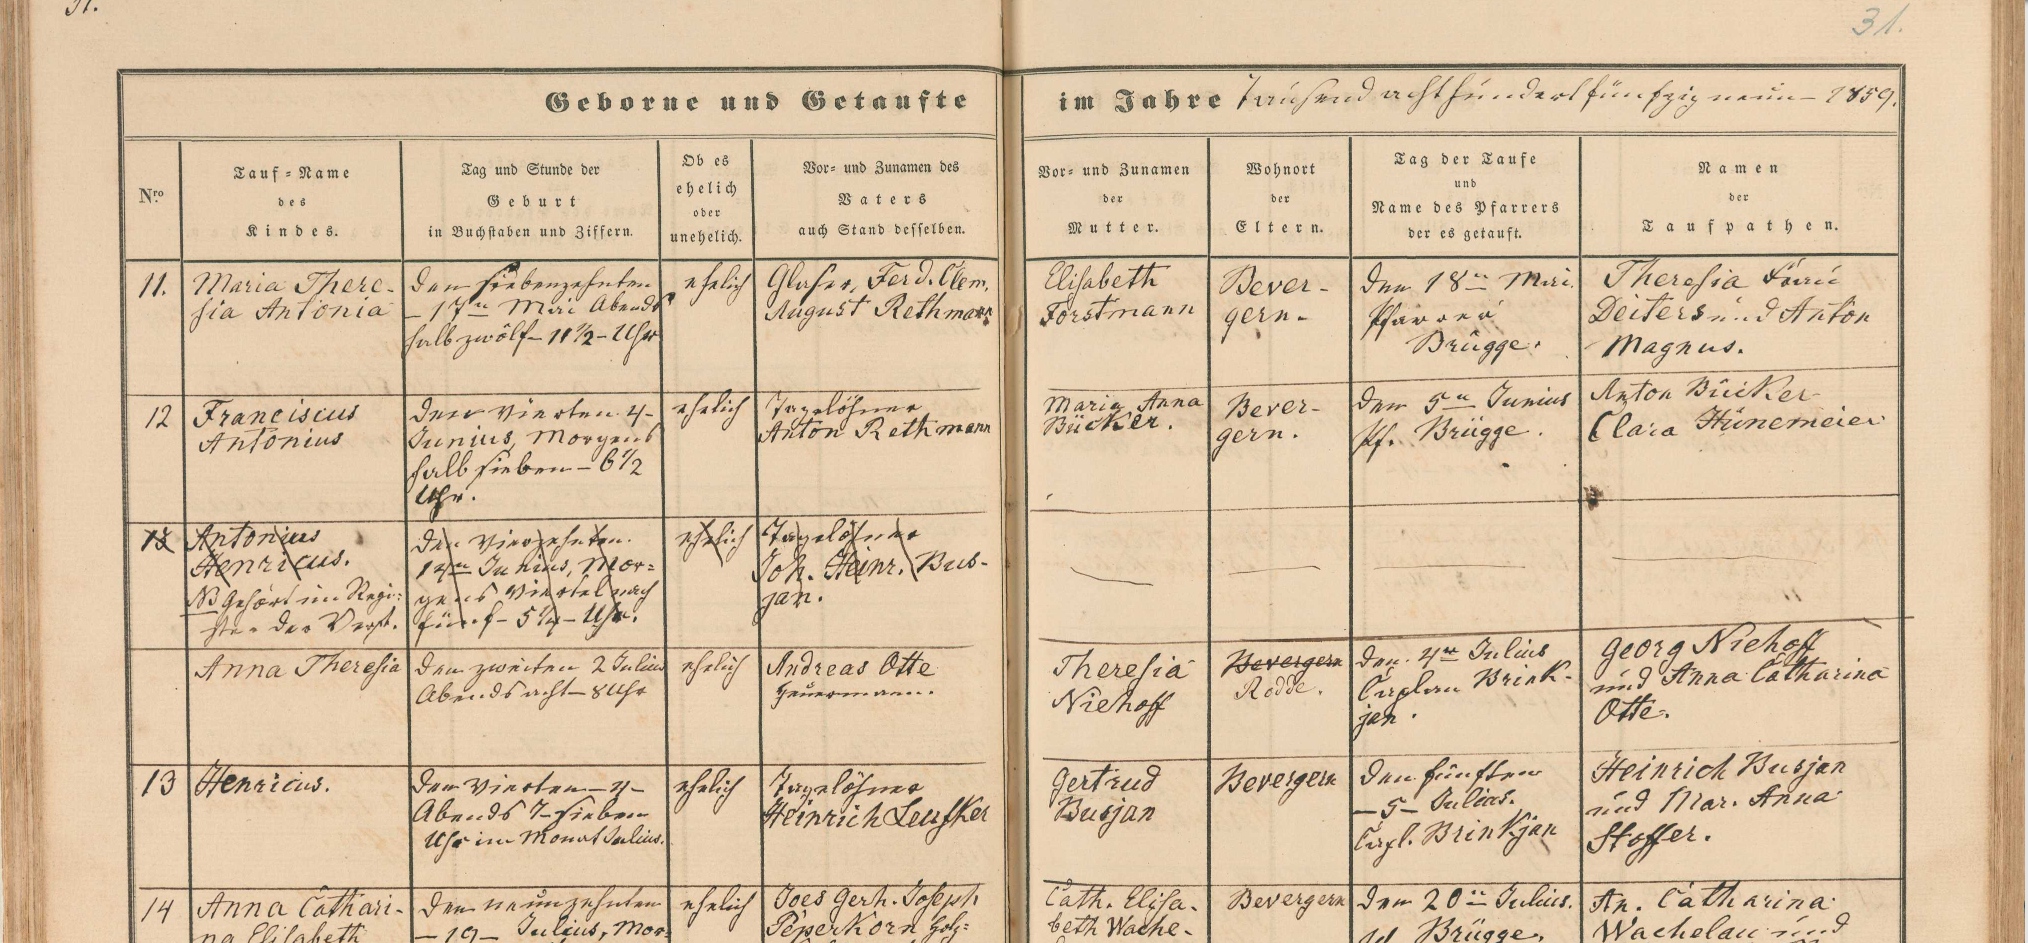 31.
31.
Geborne und Getaufte
im Jahre Tausend achthundert fünfzig neun – 1859.
Nro
Tauf-Name
des
Kindes.
Tag und Stunde der
Geburt
in Buchstaben und Ziffern.
Ob es
ehelich
oder
unehelich.
Vor- und Zunamen des
Vaters
auch Stand desselben.
Vor- und Zunamen
der
Mutter.
Wohnort
der
Eltern.
Tag der Taufe
und
Name des Pfarrers
der es getauft.
Namen
der
Taufpathen.
11.
Maria There-
sia Antonia
den siebenzehnten
– 17ten Mai Abends
halb zwölf – 11 1/2 – Uhr
ehelich
Glaser, Ferd. Clem.
August Rethmann
Elisabeth
Forstmann
Bever-
gern.
den 18ten Mai.
Pfarrer
Brügge.
Theresia Frau
Deiters und Anton
Magnus.
12
Franciscus
Antonius
den vierten 4-
Junius, Morgens
halb sieben – 6 1/2
Uhr.
ehelich
Tagelöhner
Anton Rethmann
Maria Anna
Bücker.
Bever-
gern.
den 5ten Junius
Pf. Brügge.
Anton Bücker
Clara Hünemeier
13
Antonius
Henricus.
NB Gehört im Regi-
ster der Verst.
den vierzehnten
14ten Junius, Mor-
gens viertel nach
fünf – 5 1/4 – Uhr.
ehelich
Tagelöhner
Joh. Heinr. Bus-
jan.
Anna Theresia
den zweiten 2 Julius
Abends acht – 8 Uhr
ehelich
Andreas Otte
Heuermann.
Theresia
Niehoff
Bevergern
Rodde.
den 4ten Julius
Caplan Brink-
jan.
Georg Niehoff
und Anna Catharina
Otte.
13
Henricus.
den vierten – 4 –
Abends 7 – sieben
Uhr im Monat Julius.
ehelich
Tagelöhner
Heinrich Leufker
Gertrud
Busjan
Bevergern
den fünften
– 5 – Julius.
Capl. Brinkjan
Heinrich Busjan
und Mar. Anna
Stoffer.
14
Anna Cathari-
na Elisabeth
den neunzehnten
– 19 – Julius, Mor-
ehelich
Joes Gerh. Joseph
Peperkorn Holz-
Cath. Elisa-
beth Wache-
Bevergern
den 20ten Julius.
Pf. Brügge.
An. Catharina
Wachelau und